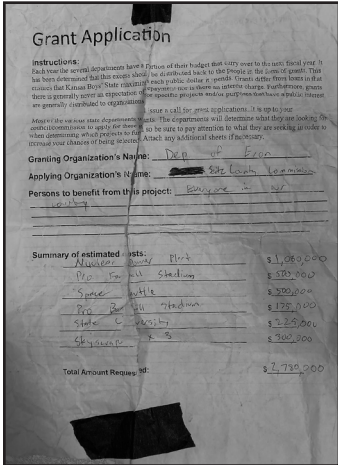 Grant Application
Instructions:
Each year the several departments have a portion of their budget that carry over to the next fiscal year. It
has been determined that this excess shou be distributed back to the people in the form of grants. This
ensures that Kansas Boys' State maximi each public dollar it spends. Grants differ from loans in that
there is generally never an expectation of repayment nor is there an interest charge. Furthermore, grants
are generally distributed to organizations specific projects and/or purposes that have a public interest
issue a call for grant applications. It is up to your
council/commission to apply for these The departments will determine what they are looking for
when determining which projects to fun so be sure to pay attention to what they are seeking in order to
increase your chances of being selected. Attach any additional sheets if necessary.
Granting Organization's Name: Dep of Econ
Applying Organization's Name: County Commission
Persons to benefit from this project: Everyone in our
county
Summary of estimated sts:
Nuclear Power Plant $ 1,080,000
Pro ll Stadium $ 500,000
Space uttle $ 500,000
Pro ll Stadium $ 175,000
State versity $ 225,000
Skyscraper x 3 $ 300,000
Total Amount Requested: $ 2,780,000